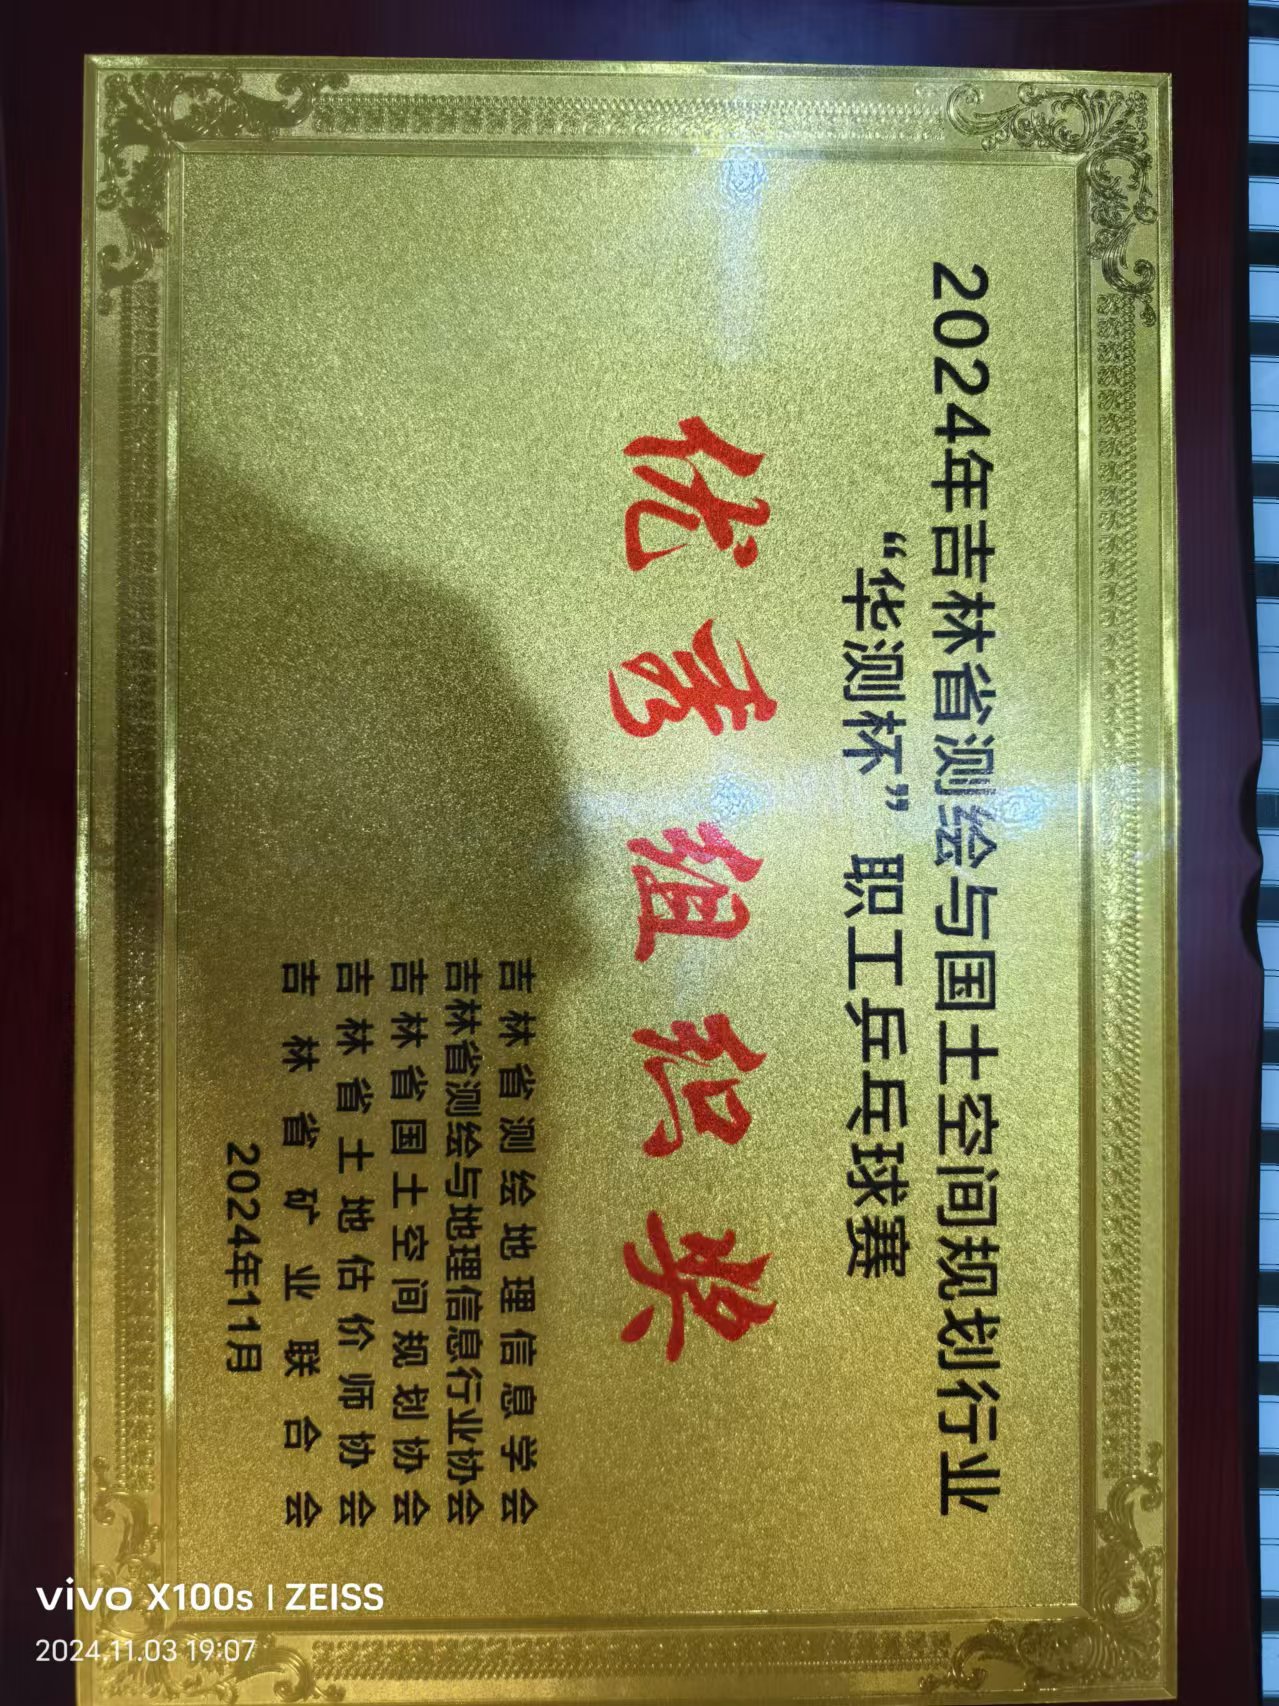 2024年吉林省测绘与国土空间规划行业
“华测杯”职工乒乓球赛
优秀组织奖
吉林省测绘地理信息学会
吉林省测绘与地理信息行业协会
吉林省国土空间规划协会
吉林省土地估价师协会
吉林省矿业联合会
2024年11月
vivo X100s | ZEISS
2024.11.03 19:07